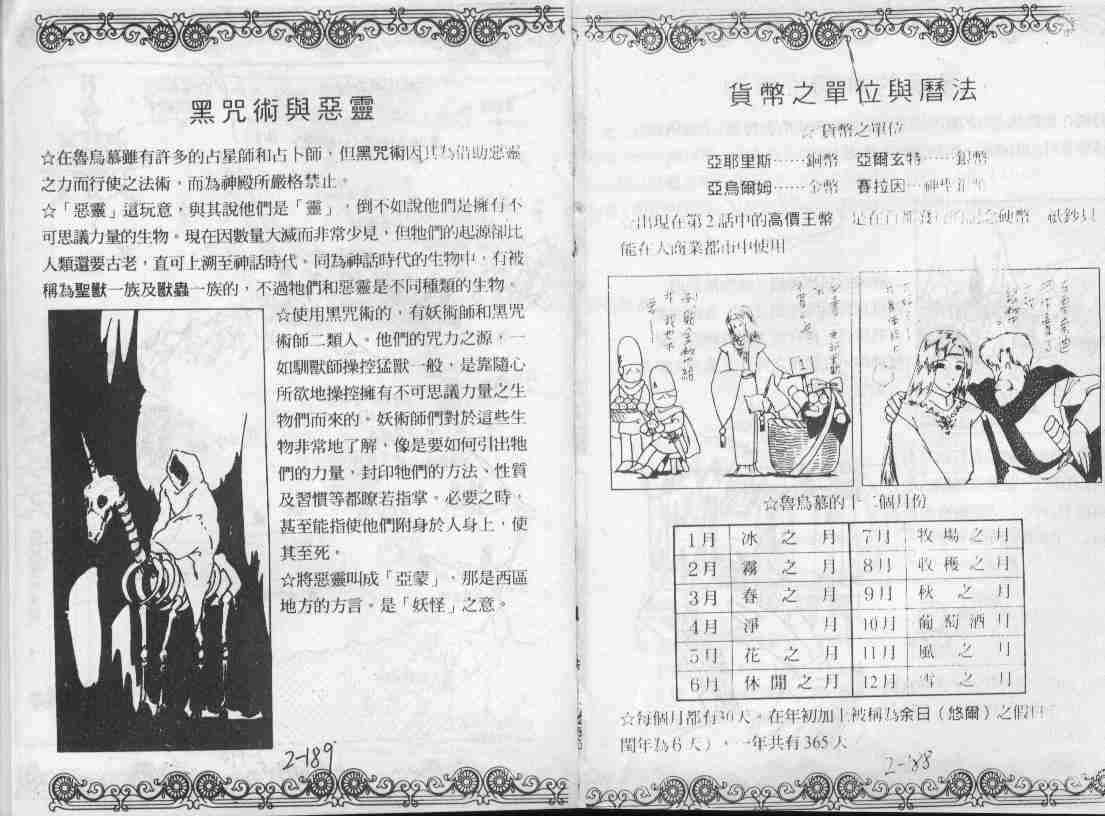 黑咒術與惡靈
☆在魯烏慕雖有許多的占星師和占卜師，但黑咒術因其為借助惡靈
之力而行使之法術，而為神殿所嚴格禁止。
☆「惡靈」這玩意，與其說他們是「靈」，倒不如說他們是擁有不
可思議力量的生物。現在因數量大減而非常少見，但牠們的起源卻比
人類還要古老，直可上溯至神話時代。同為神話時代的生物中，有被
稱為聖獸一族及獸蟲一族的，不過牠們和惡靈是不同種類的生物。
☆使用黑咒術的，有妖術師和黑咒
術師二類人。他們的咒力之源，一
如馴獸師操控猛獸一般，是靠隨心
所欲地操控擁有不可思議力量之生
物們而來的。妖術師們對於這些生
物非常地了解，像是要如何引出牠
們的力量，封印牠們的方法、性質
及習慣等都瞭若指掌。必要之時，
甚至能指使他們附身於人身上，使
其至死。
☆將惡靈叫成「亞蒙」，那是西區
地方的方言。是「妖怪」之意。
2-189
貨幣之單位與曆法
☆貨幣之單位
亞耶里斯……銅幣　亞爾玄特……銀幣
亞烏爾姆……金幣　賽拉因…神聖
☆出現在第2話中的高價王幣，是在 紀念硬幣 紙鈔只
能在大商業都市中使用
☆魯烏慕的十二個月份
1月 冰之月 7月 牧場之月
2月 霧之月 8月 收穫之月
3月 春之月 9月 秋之月
4月 淨月 10月 葡萄酒月
5月 花之月 11月 風之月
6月 休閒之月 12月 雪之月
☆每個月都有30天。在年初加上被稱為余日（悠爾）之假日
閏年為6天），一年共有365天
2-188